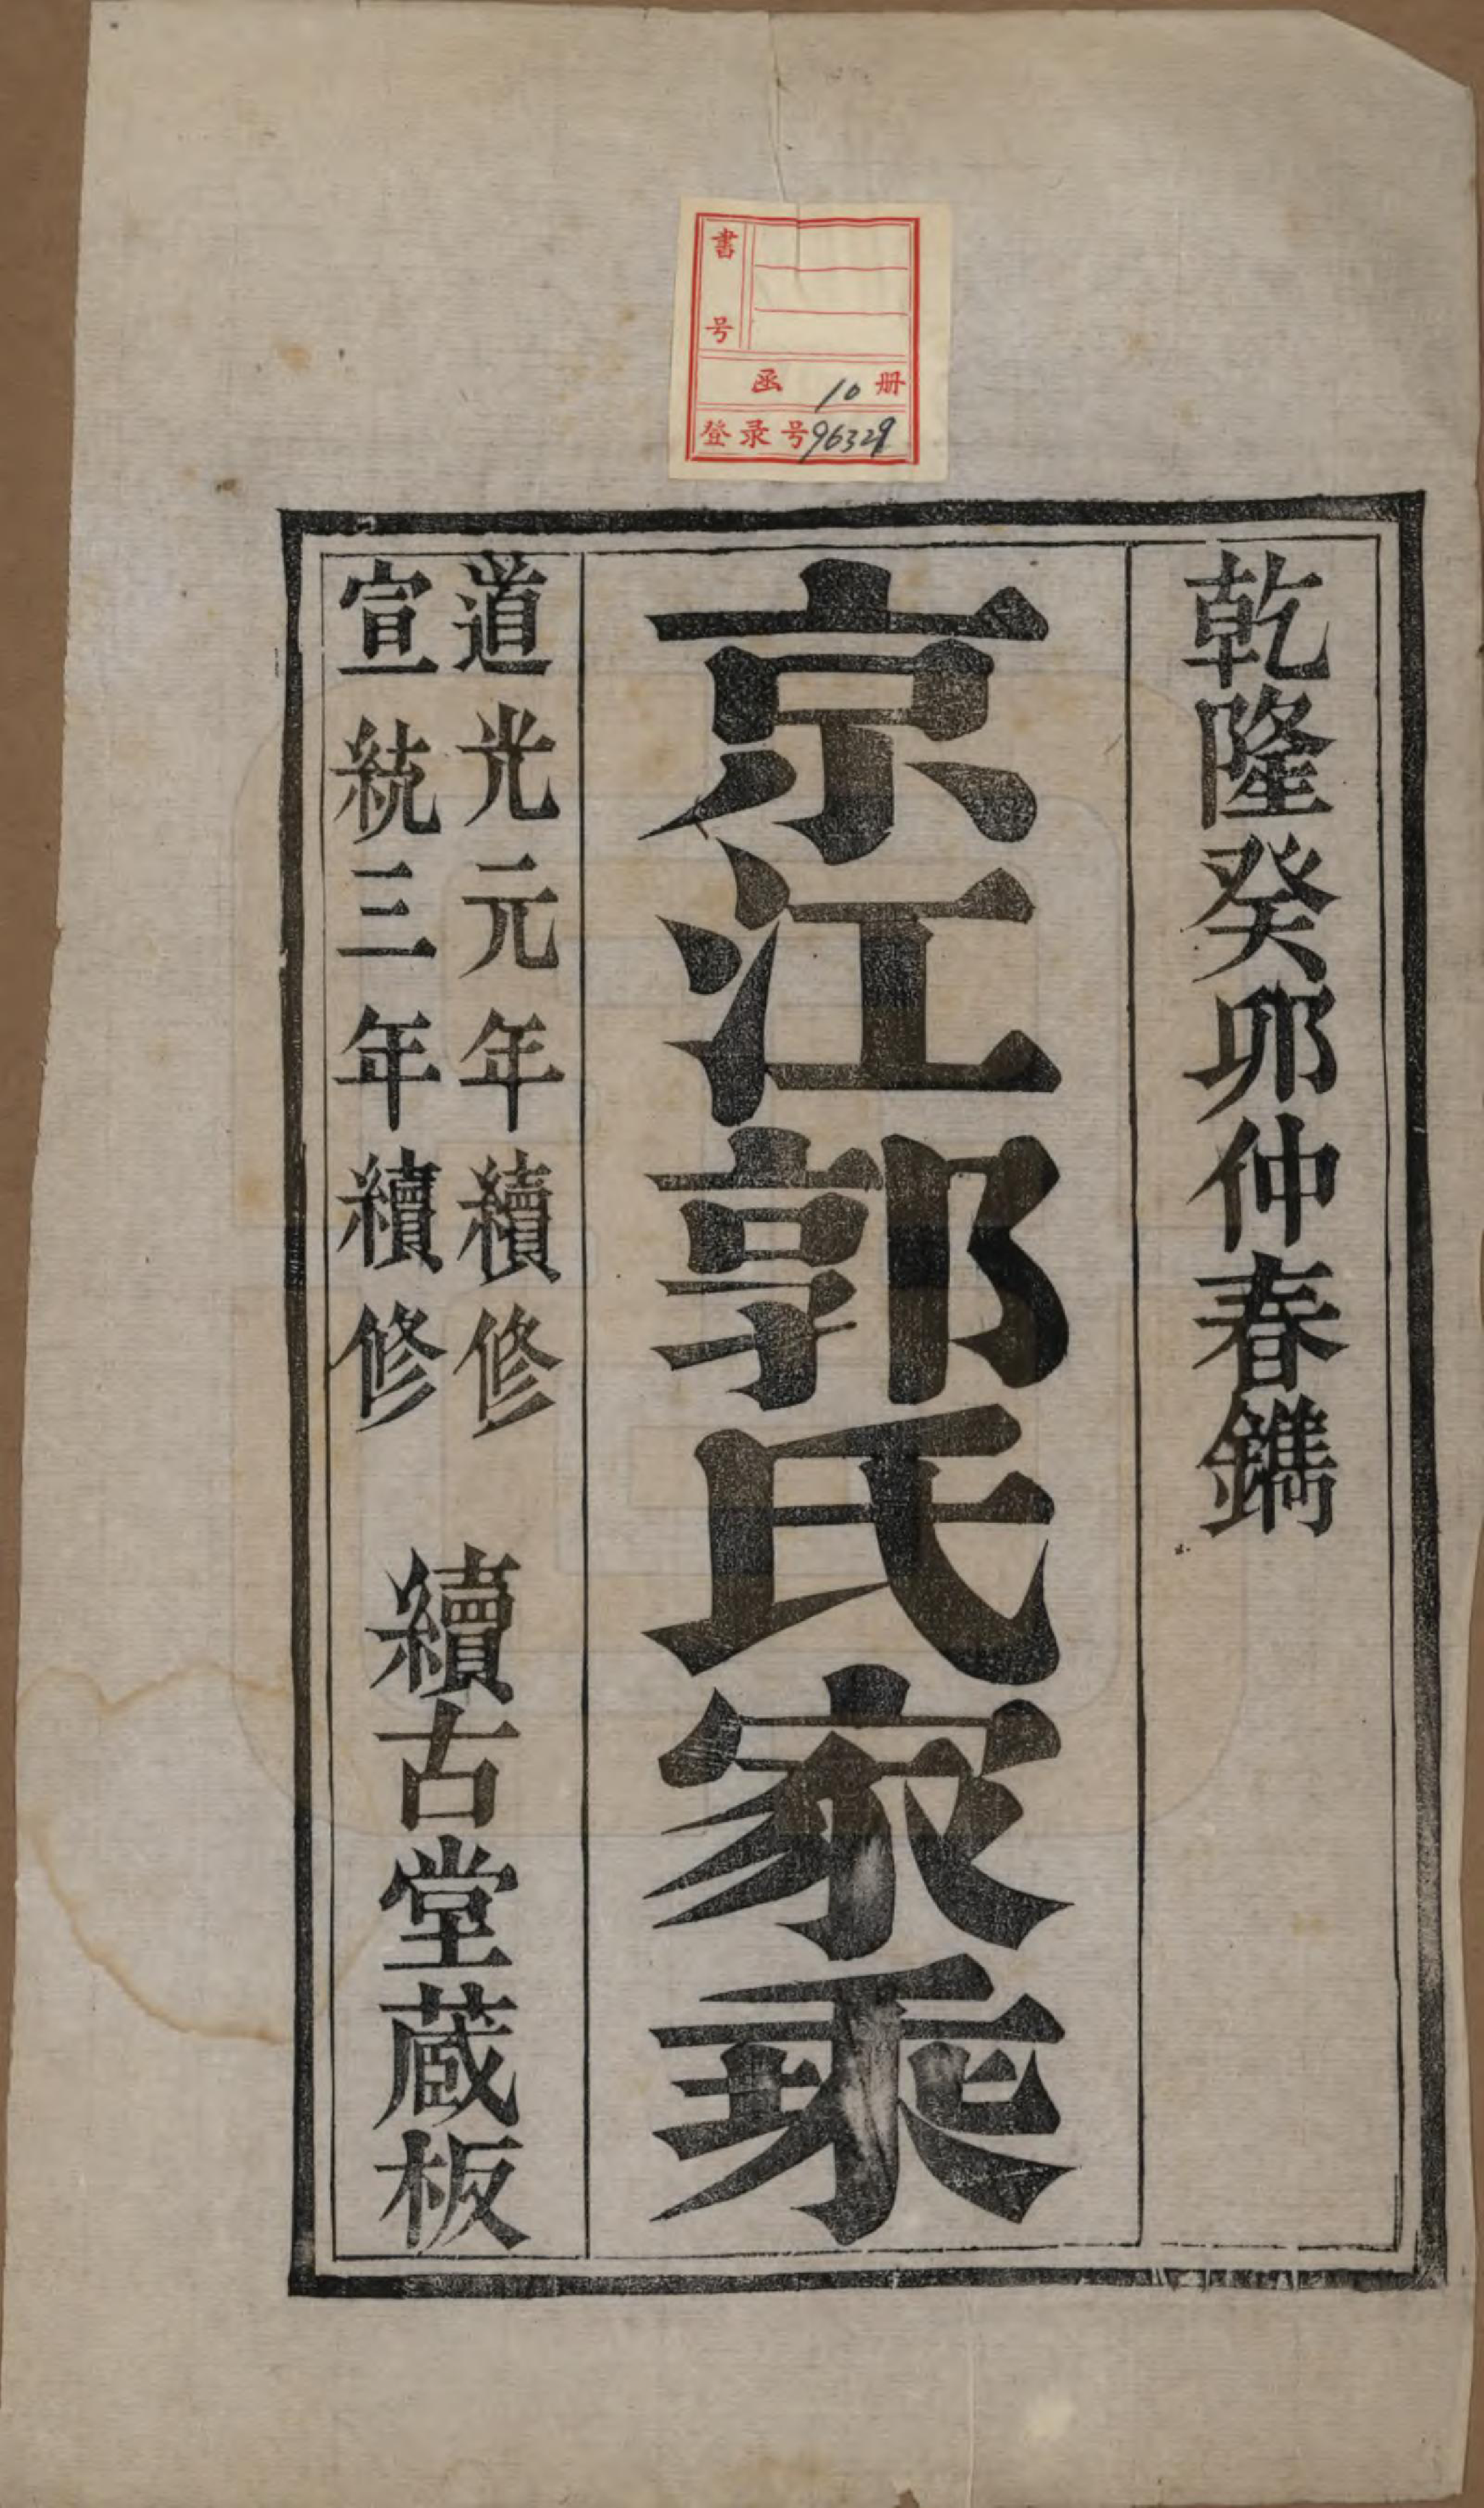 書号
函 10 册
登录号96329
乾隆癸卯仲春鐫
京江郭氏家乘
道光元年續修
宣統三年續修
續古堂蔵板